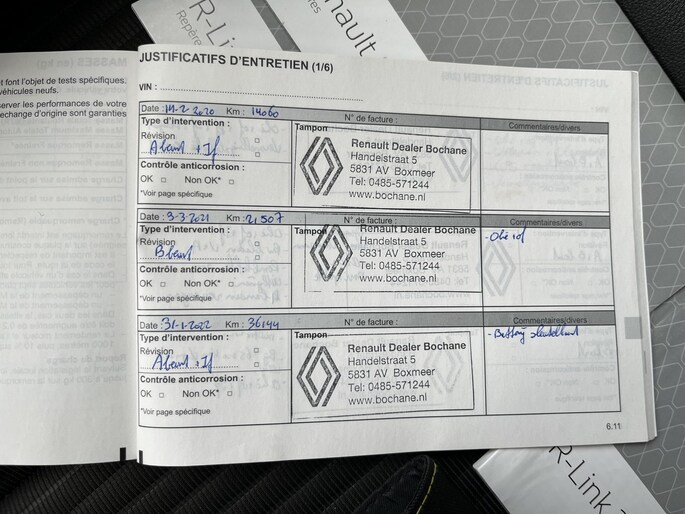 R-Link
Repère
Renault
res
t font l'objet de tests spécifiques.
véhicules neufs.
server les performances de votre
echange d'origine sont garanties
JUSTIFICATIFS D'ENTRETIEN (1/6)
VIN :
Date : 14-2-2020 Km : 14060 N° de facture : Commentaires/divers
Type d'intervention :
Révision
A beurt + If
Contrôle anticorrosion :
OK Non OK*
*Voir page spécifique
Tampon
Renault Dealer Bochane
Handelstraat 5
5831 AV Boxmeer
Tel: 0485-571244
www.bochane.nl
Date : 3-3-2021 Km : 21507 N° de facture : Commentaires/divers
Type d'intervention :
Révision
B beurt
Contrôle anticorrosion :
OK Non OK*
*Voir page spécifique
Tampon
Renault Dealer Bochane
Handelstraat 5
5831 AV Boxmeer
Tel: 0485-571244
www.bochane.nl
- Olie
Date : 31-1-2022 Km : 36144 N° de facture : Commentaires/divers
Type d'intervention :
Révision
A beurt + If
Contrôle anticorrosion :
OK Non OK*
*Voir page spécifique
Tampon
Renault Dealer Bochane
Handelstraat 5
5831 AV Boxmeer
Tel: 0485-571244
www.bochane.nl
6.11
R-Link